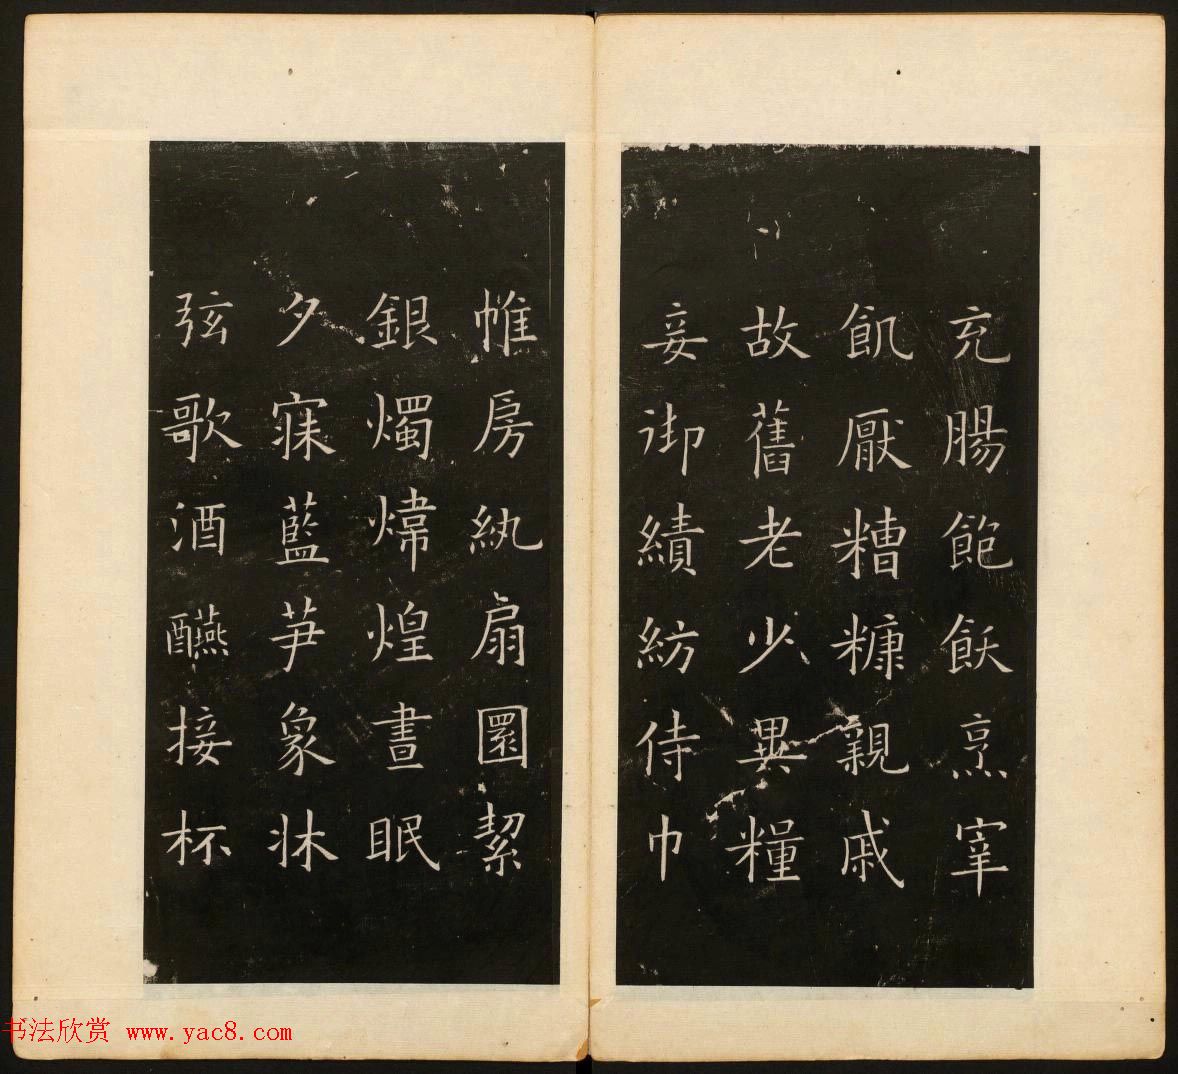 充腸飽飫烹宰
飢厭糟糠親戚
故舊老少異糧
妾御績紡侍巾
帷房紈扇圎絜
銀燭煒煌晝眠
夕寐藍笋象牀
弦歌酒醼接杯
书法欣赏 www.yac8.com